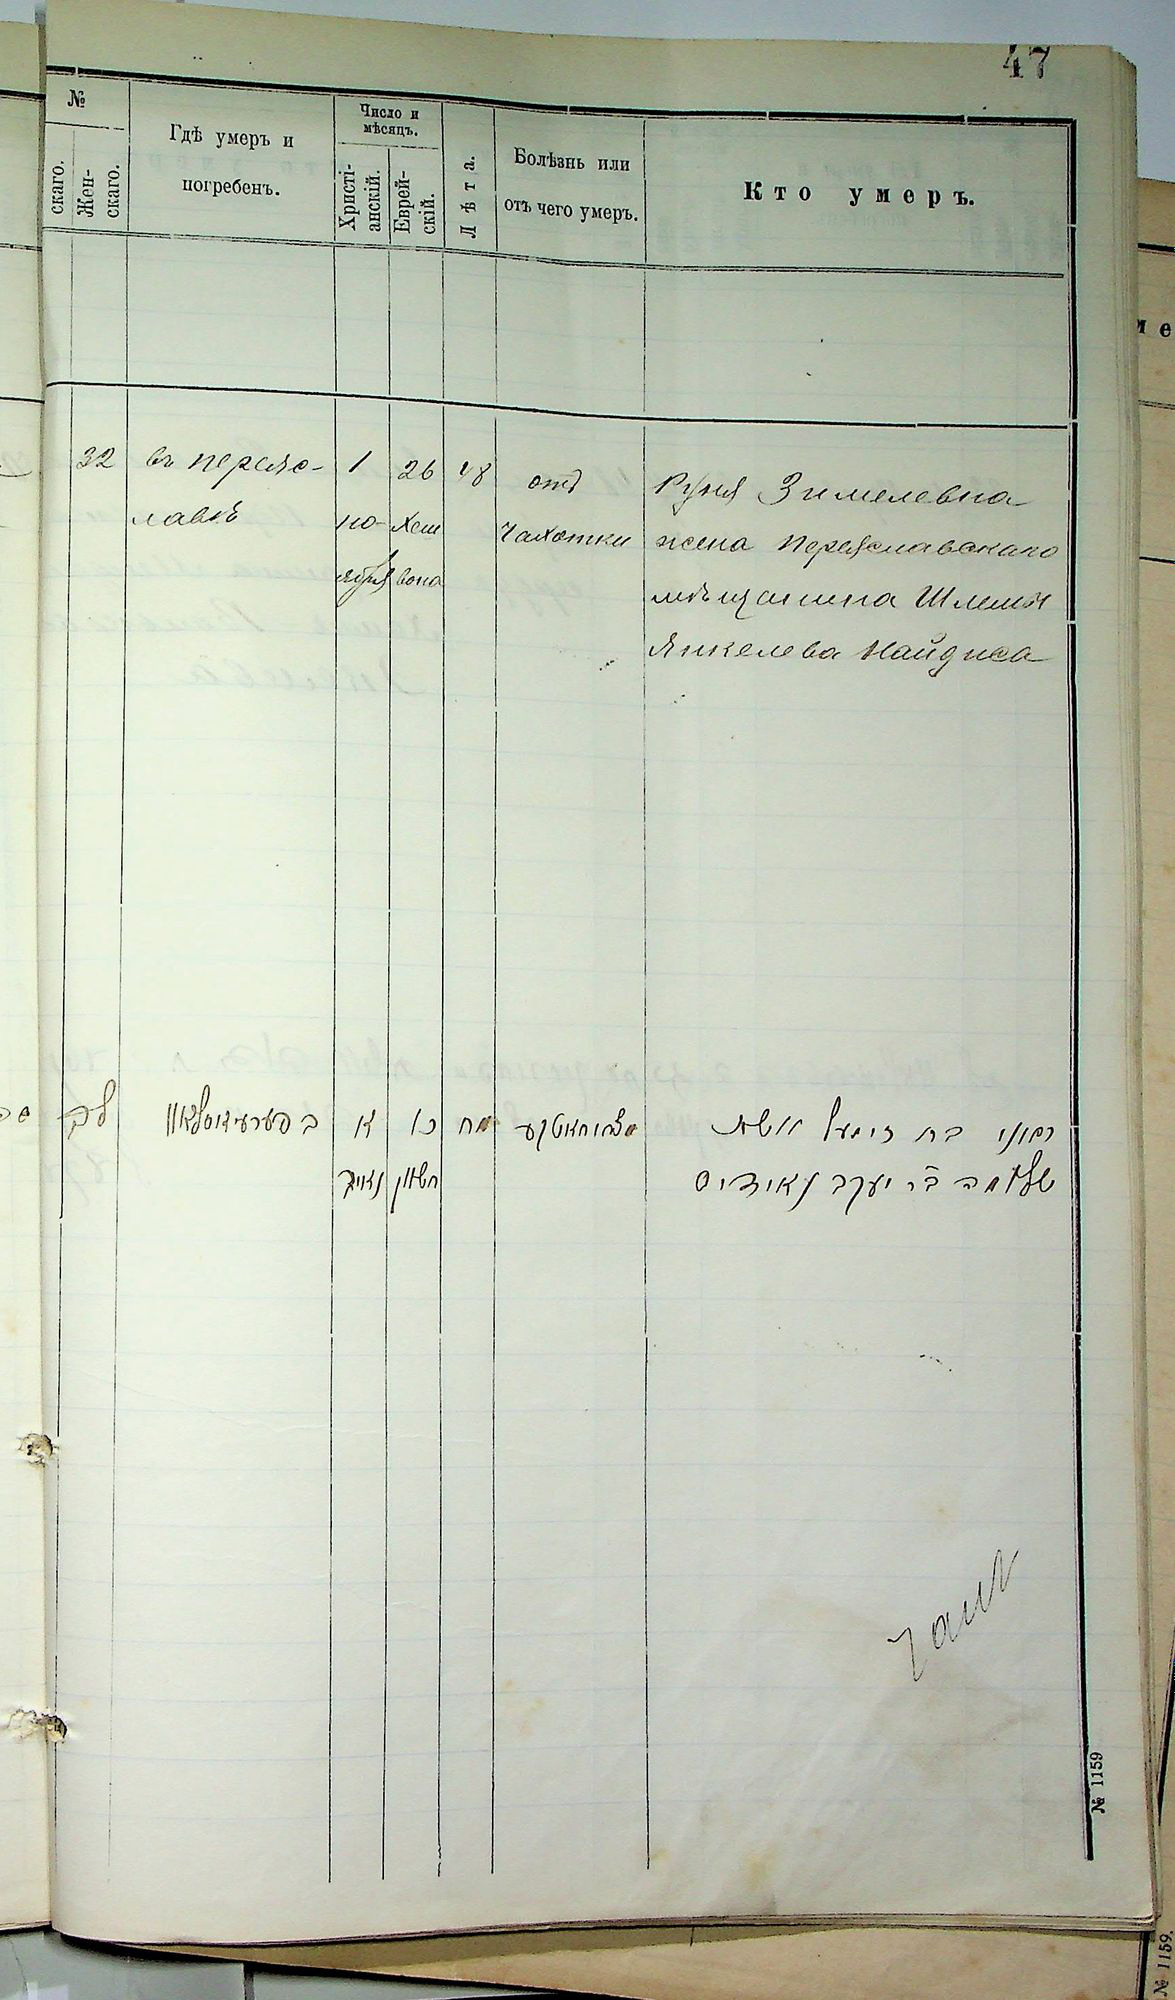 47
№
скаго.
Жен-
скаго.
Гдѣ умеръ и
погребенъ.
Число и
мѣсяцъ.
Христі-
анскій.
Еврей-
скій.
Лѣта.
Болѣзнь или
отъ чего умеръ.
Кто умеръ.
32
въ Переяс-
лавлѣ
1
но-
ября
26
Хеш
вона
48
отъ
чахотки
Руня Зимелевна
жена Переяславскаго
мѣщанина Шлемы
Янкелева Найдиса
לב
בפערעיאסלאוו
א
נאיאבר
כו
חשון
מח
רוני בת זימעל אשת
שלמה בר יעקב נאידיס
№ 1159
№ 1159.